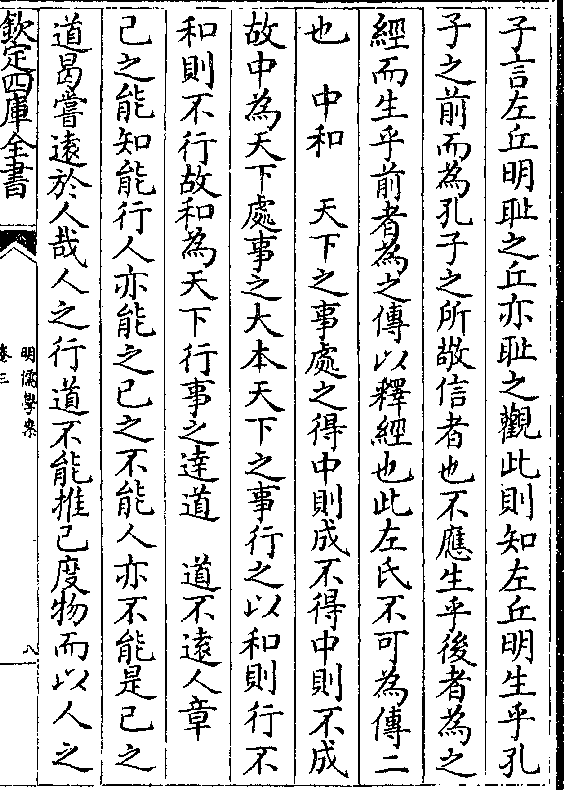 子言左丘明耻之丘亦耻之觀此則知左丘明生乎孔
子之前而為孔子之所敬信者也不應生乎後者為之
經而生乎前者為之傳以釋經也此左氏不可為傳二
也　中和　天下之事處之得中則成不得中則不成
故中為天下處事之大本天下之事行之以和則行不
和則不行故和為天下行事之達道　道不遠人章
己之能知能行人亦能之己之不能人亦不能是己之
道曷嘗遠於人哉人之行道不能推己度物而以人之
欽定四庫全書
明儒學案
卷三
八